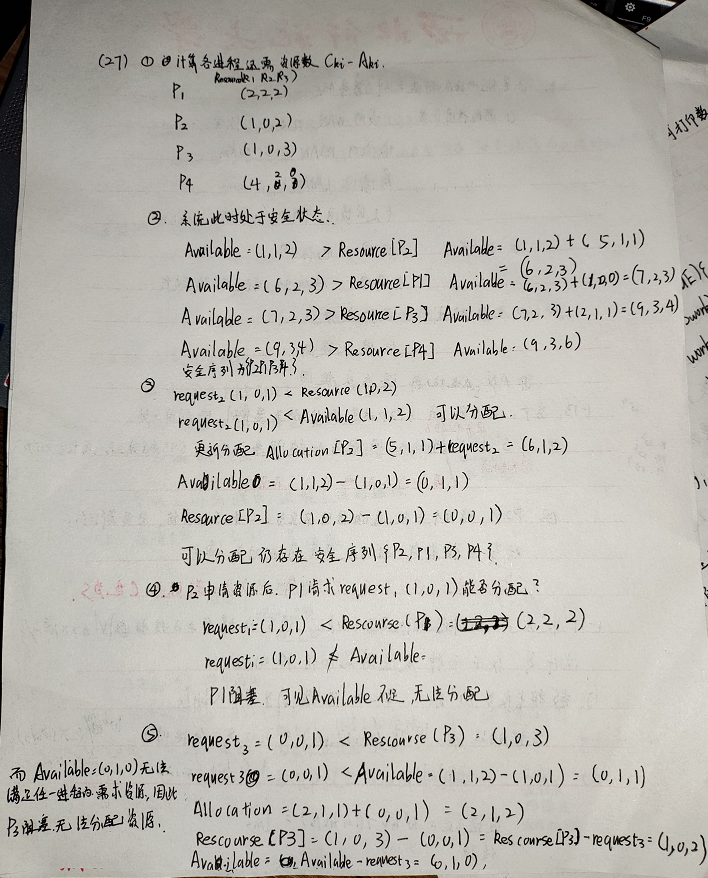 (27) ① 计算各进程还需资源数 Cki-Aki.
Resource(R1 R2 R3)
P1 (2,2,2)
P2 (1,0,2)
P3 (1,0,3)
P4 (4,2,0)
②. 系统此时处于安全状态.
Available=(1,1,2) > Resource[P2] Available= (1,1,2)+(5,1,1)
= (6,2,3)
Available=(6,2,3)>Resource[P1] Available=(6,2,3)+(1,0,0)=(7,2,3)
Available=(7,2,3)>Resource[P3] Available=(7,2,3)+(2,1,1)=(9,3,4)
Available=(9,3,4) > Resource[P4] Available=(9,3,6)
安全序列为{P2P1P3P4}.
③ request2(1,0,1)<Resource(1,0,2)
request2(1,0,1)<Available(1,1,2) 可以分配.
更新分配 Allocation[P2]=(5,1,1)+request2=(6,1,2)
Available = (1,1,2)-(1,0,1)=(0,1,1)
Resource[P2]= (1,0,2)-(1,0,1)=(0,0,1)
可以分配 仍存在安全序列{P2,P1,P3,P4}.
④. P2申请资源后. P1请求request1(1,0,1)能否分配?
request1=(1,0,1) < Rescourse(P1)= (2,2,2)
request1=(1,0,1) ≮ Available.
P1阻塞. 可见Available不足,无法分配
⑤. request3=(0,0,1) < Rescourse(P3)=(1,0,3)
request3=(0,0,1)<Available=(1,1,2)-(1,0,1)=(0,1,1)
Allocation=(2,1,1)+(0,0,1)=(2,1,2)
Rescourse[P3]=(1,0,3)-(0,0,1)=Rescourse[P3]-request3=(1,0,2)
Available= Available-request3=(0,1,0),
而Available=(0,1,0)无法
满足任一进程的需求资源,因此
P3阻塞.无法分配资源.